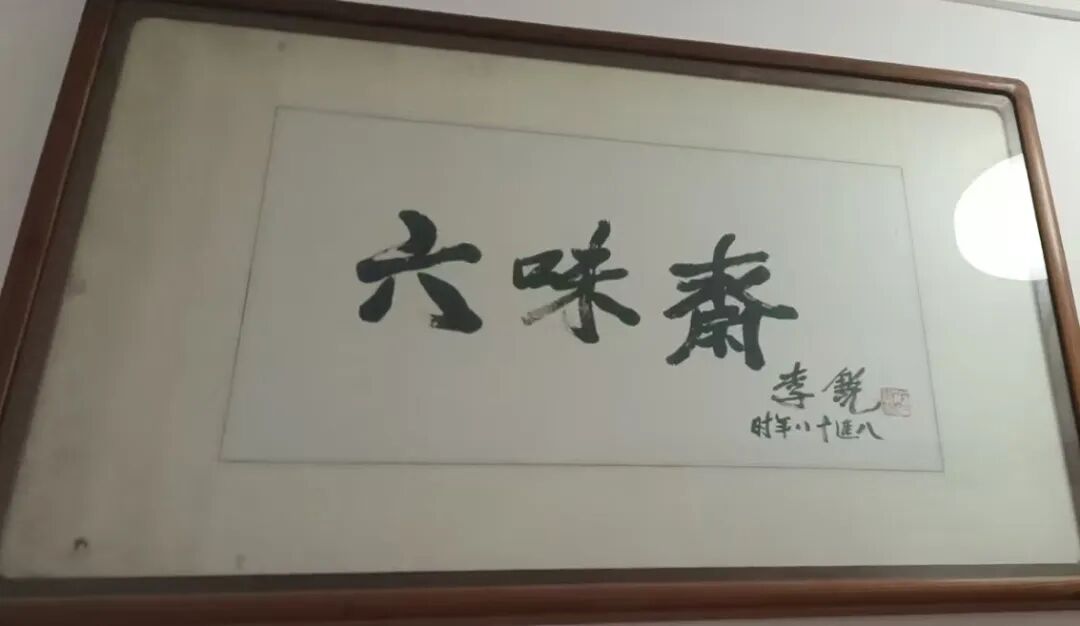 六味斋
李锐
时年八十进八